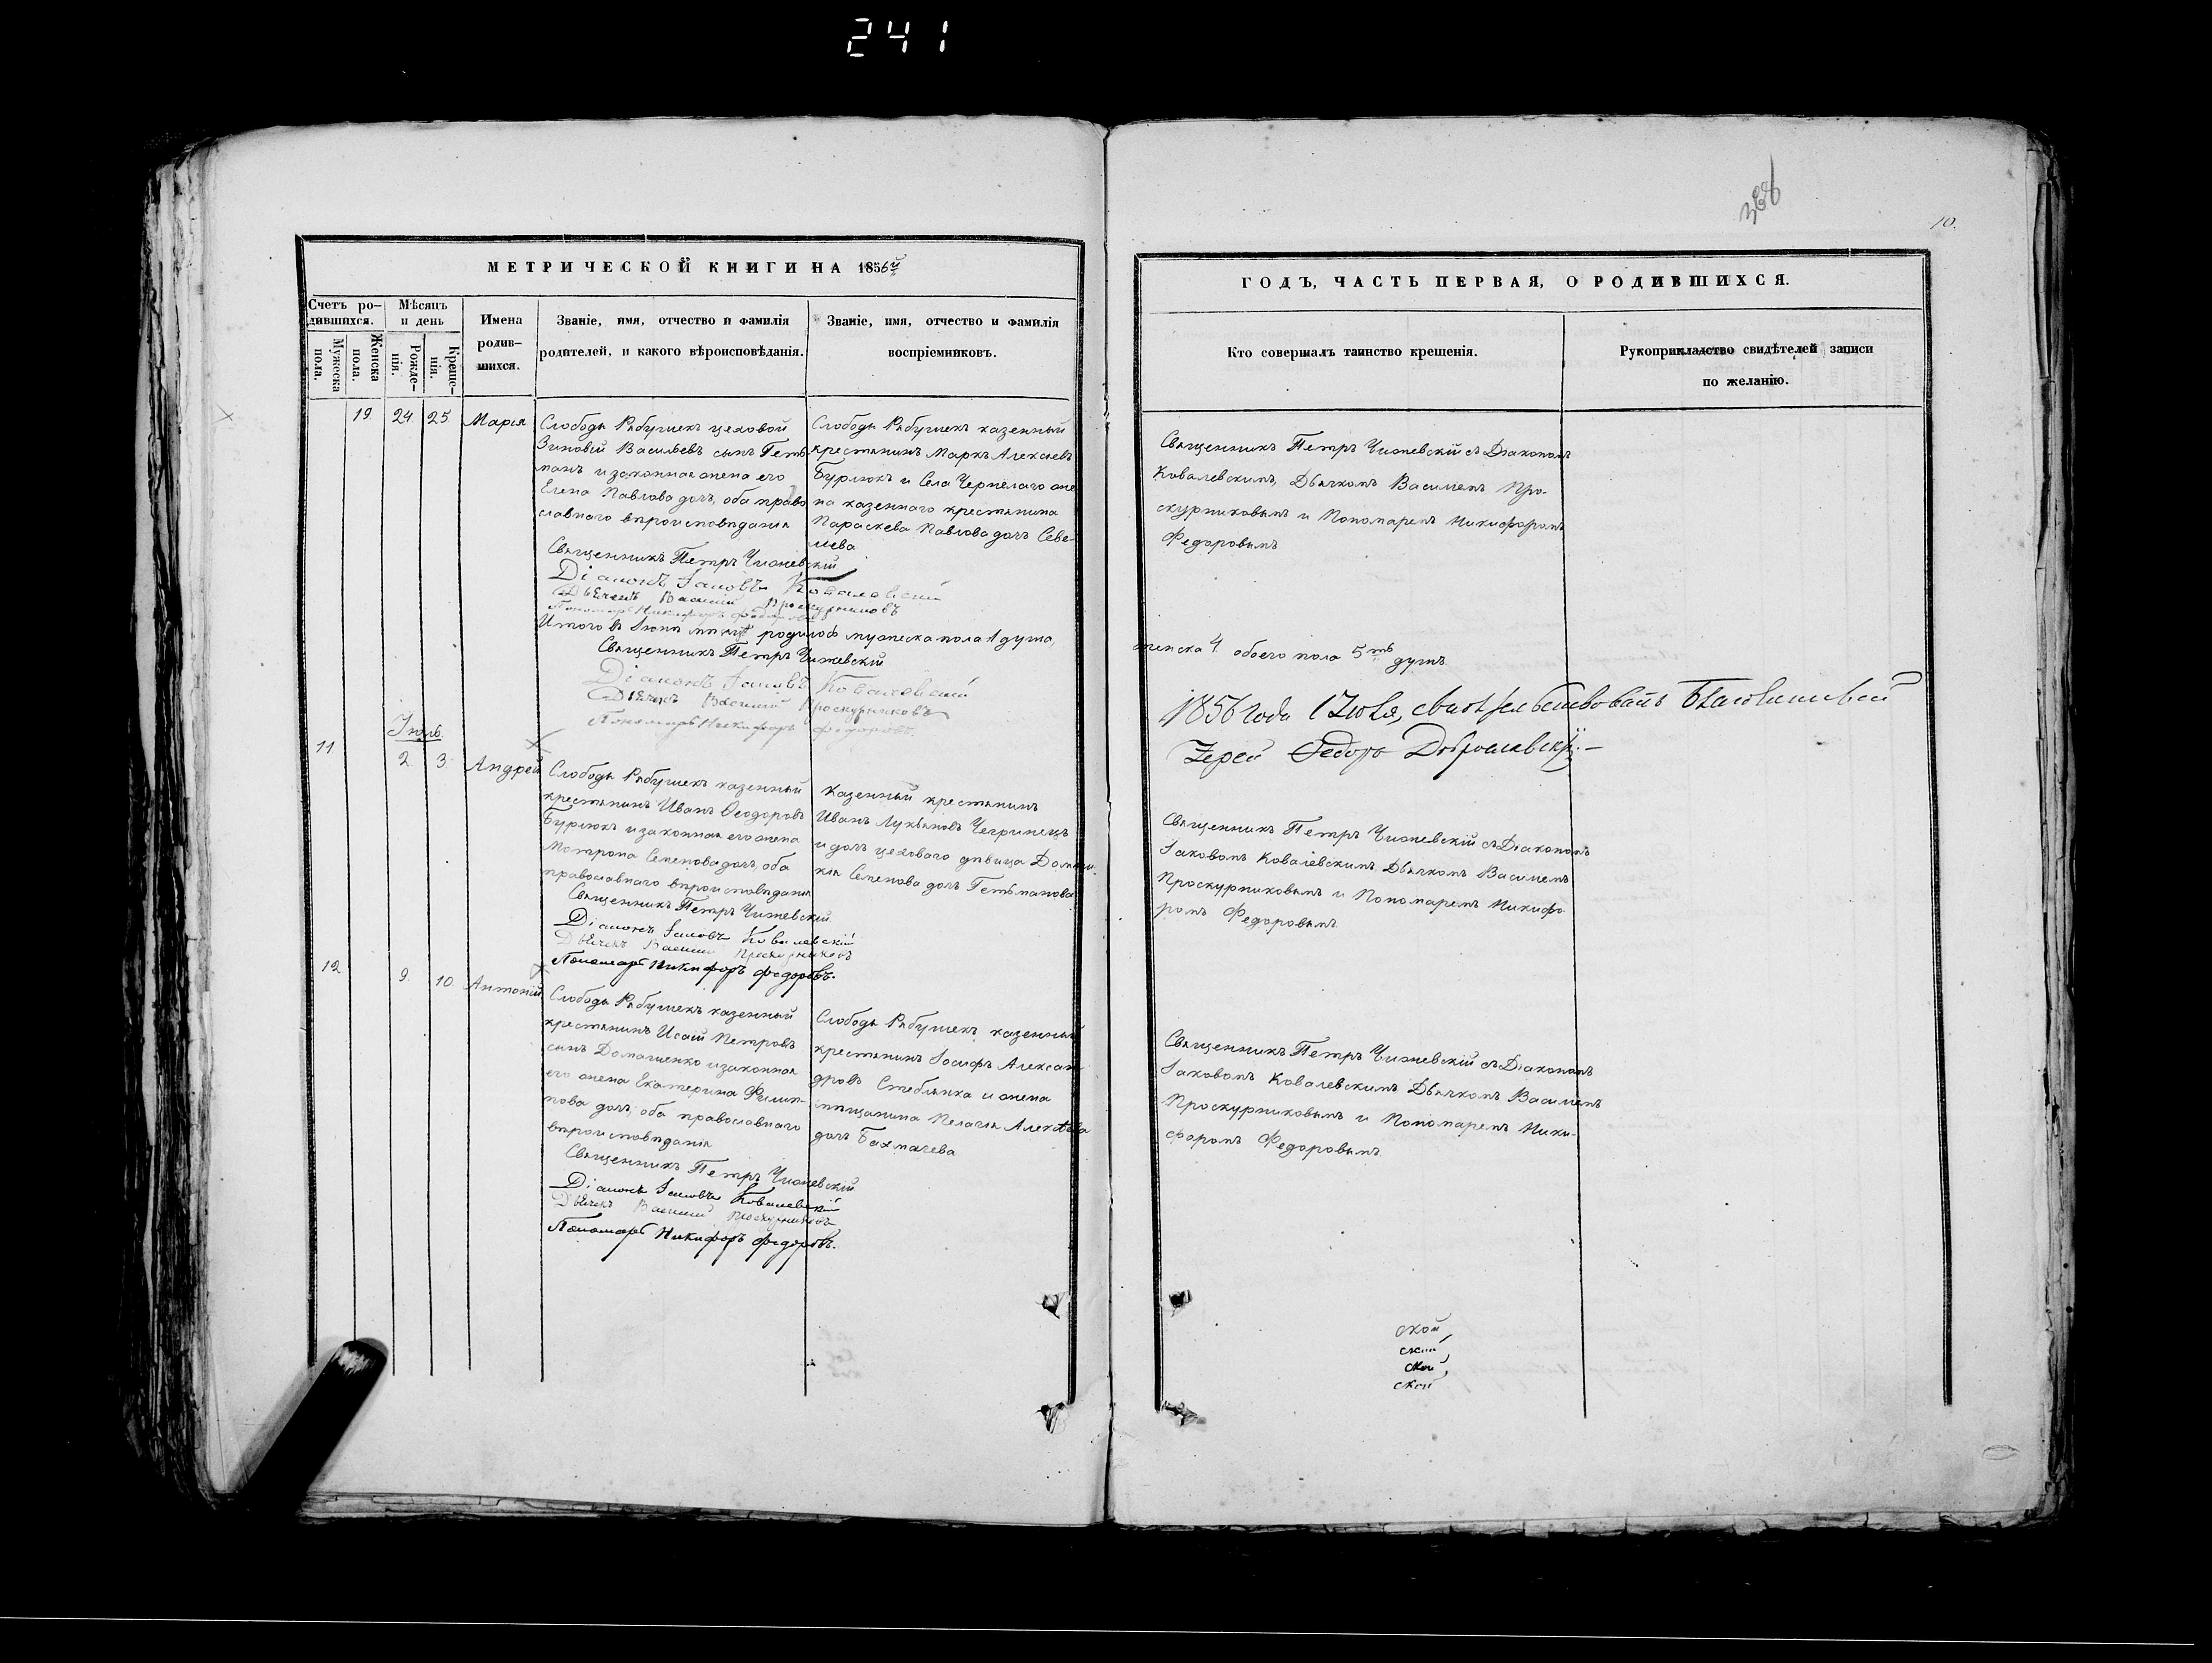 241
МЕТРИЧЕСКОЙ КНИГИ НА 1856й
Счетъ ро-
дившихся.
Мужеска
пола.
Женска
пола.
Мѣсяцъ
и день
Рожде-
нія.
Креще-
нія.
Имена
родив-
шихся.
Званіе, имя, отчество и фамилія
родителей, и какого вѣроисповѣданія.
Званіе, имя, отчество и фамилія
воспріемниковъ.
19 24 25 Марія
Слободы Рябушекъ цеховой
Зиновій Васильевъ сынъ Геть-
манъ и законная жена его
Елена Павлова дочь, оба право
славнаго вѣроисповѣданія
Слободы Рябушекъ казенный
крестьянинъ Маркъ Алексѣевъ
Бурлюкъ и Села Черпелаго же
на казеннаго крестьянина
Параскева Павлова дочь
Священникъ Петръ Чижевскій
Діаконъ Іаковъ Ковалевскій
Дьячекъ Василій Проскурниковъ
Пономарь Никифоръ Федоровъ
Итого въ Іюнѣ мѣсяцѣ родилось мужеска пола 1 душа,
Священникъ Петръ Чижевскій
Діаконъ Іаковъ Ковалевскій
Дьячекъ Василій Проскурниковъ
Пономарь Никифоръ Федоровъ.
Іюль
11 2 3 Андрей
Слободы Рябушекъ казенный
крестьянинъ Иванъ Ѳеодоровъ
Бурлюкъ и законная его жена
Мотрона Семенова дочь, оба
православнаго вѣроисповѣданія
Казенный крестьянинъ
Иванъ Лукьяновъ Чегринецъ
и дочь цеховаго дѣвица Домни-
кія Семенова дочь Гетьманова
Священникъ Петръ Чижевскій
Діаконъ Іаковъ Ковалевскій
Дьячекъ Василій Проскурниковъ
Пономарь Никифоръ Федоровъ.
12 9 10 Антоній
Слободы Рябушекъ казенный
крестьянинъ Исаій Петровъ
сынъ Домашенко и законная
его жена Екатерина Филип-
пова дочь, оба православнаго
вѣроисповѣданія
Слободы Рябушекъ казенный
крестьянинъ Іосифъ Алексан-
дровъ Стеблянка и жена
мѣщанина Пелагія Алексѣева
дочь Бахмачева
Священникъ Петръ Чижевскій
Діаконъ Іаковъ Ковалевскій
Дьячекъ Василій Проскурниковъ
Пономарь Никифоръ Федоровъ.
10.
ГОДЪ, ЧАСТЬ ПЕРВАЯ, О РОДИВШИХСЯ.
Кто совершалъ таинство крещенія.
Рукоприкладство свидѣтелей записи
по желанію.
Священникъ Петръ Чижевскій съ Діакономъ
Ковалевскимъ, Дьячкомъ Василіемъ Про-
скурниковымъ и Пономаремъ Никифоромъ
Федоровымъ
женска 4 обоего пола 5ть душъ
1856 года 1 Іюля, свидѣтельствовалъ Благочинный
Іерей Федоръ
Священникъ Петръ Чижевскій съ Діакономъ
Іаковомъ Ковалевскимъ Дьячкомъ Василіемъ
Проскурниковымъ и Пономаремъ Никифо
ромъ Федоровымъ
Священникъ Петръ Чижевскій съ Діакономъ
Іаковомъ Ковалевскимъ Дьячкомъ Василіемъ
Проскурниковымъ и Пономаремъ Ники-
форомъ Федоровымъ
ской
ской
ской
ской